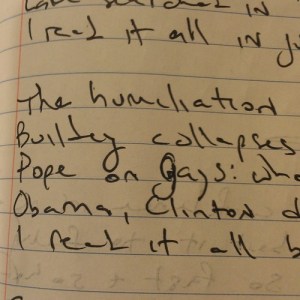 I read it all in
The humiliation
Building collapses
Pope on Gays: who
Obama, Clinton d
I read it all b